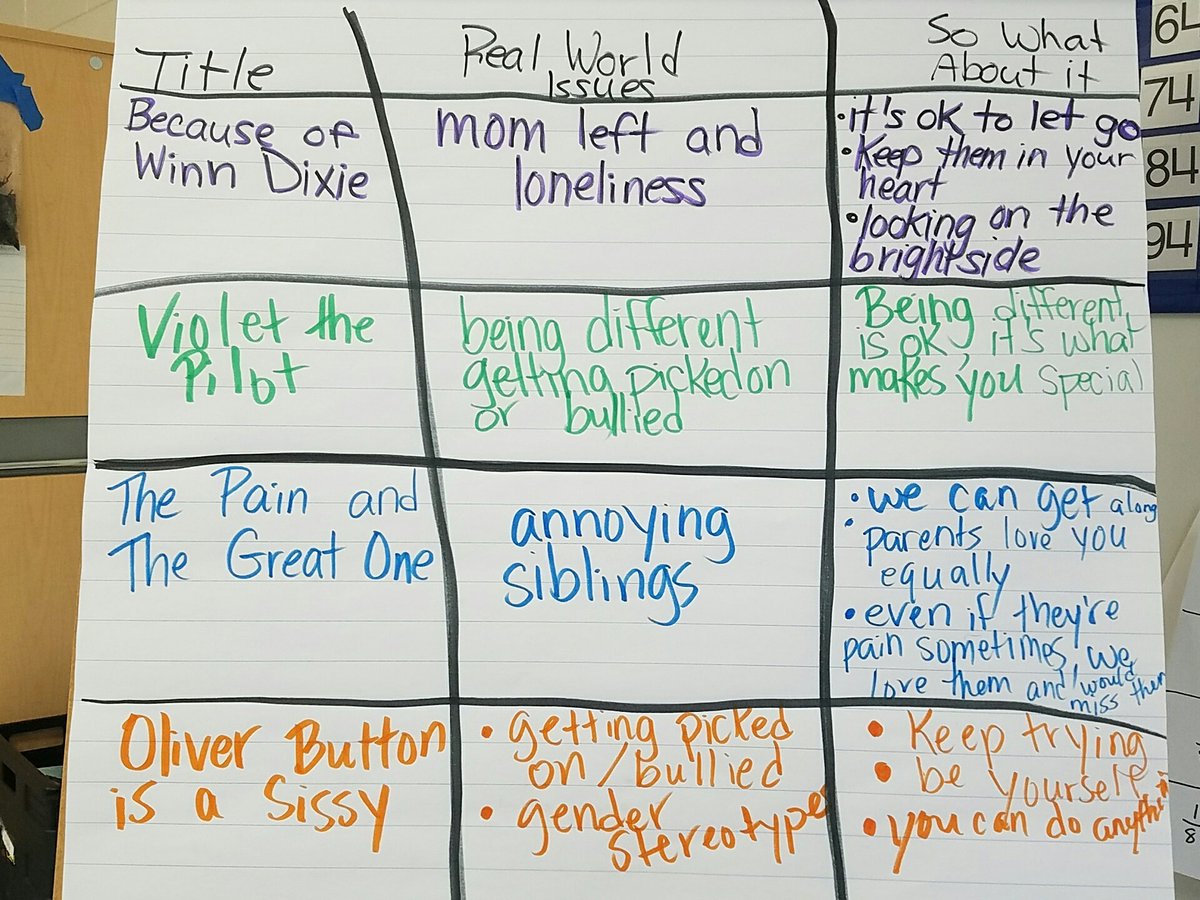 Title
Real World
Issues
So What
About it
Because of
Winn Dixie
mom left and
loneliness
•it's ok to let go
•Keep them in your
heart
•looking on the
brightside
Violet the
Pilot
being different
getting picked on
or bullied
Being different
is ok, it's what
makes you special
The Pain and
The Great One
annoying
siblings
•we can get along
•parents love you
equally
•even if they're
pain sometimes, we
love them and would
miss them
Oliver Button
is a Sissy
• getting picked
on/bullied
• gender
stereotypes
• Keep trying
• be yourself
• you can do anythin
64
74
84
94
1
8